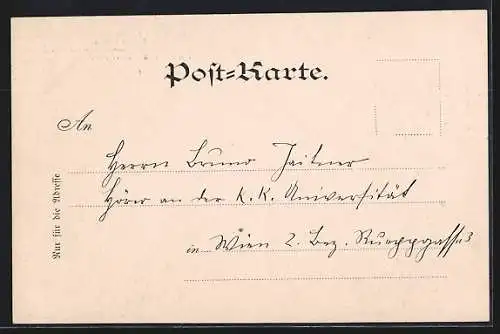 Post=Karte.
An
Herrn Bruno
Hörer an der k. k. Universität
in Wien 2. Bez.
Nur für die Adresse